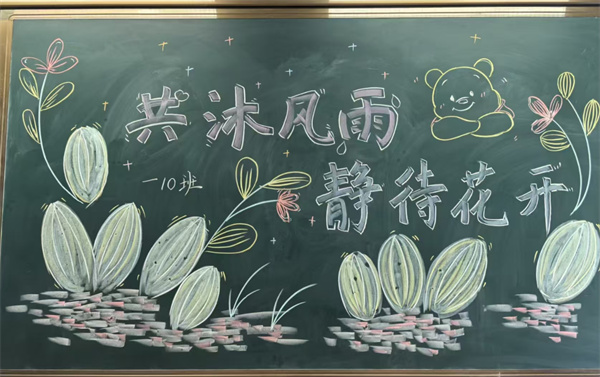 共沐风雨
一10班
静待花开